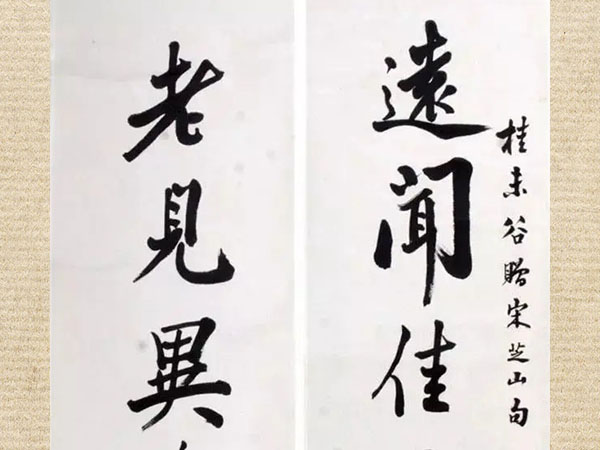 桂未谷贈宋芝山句
遠聞佳
老見異